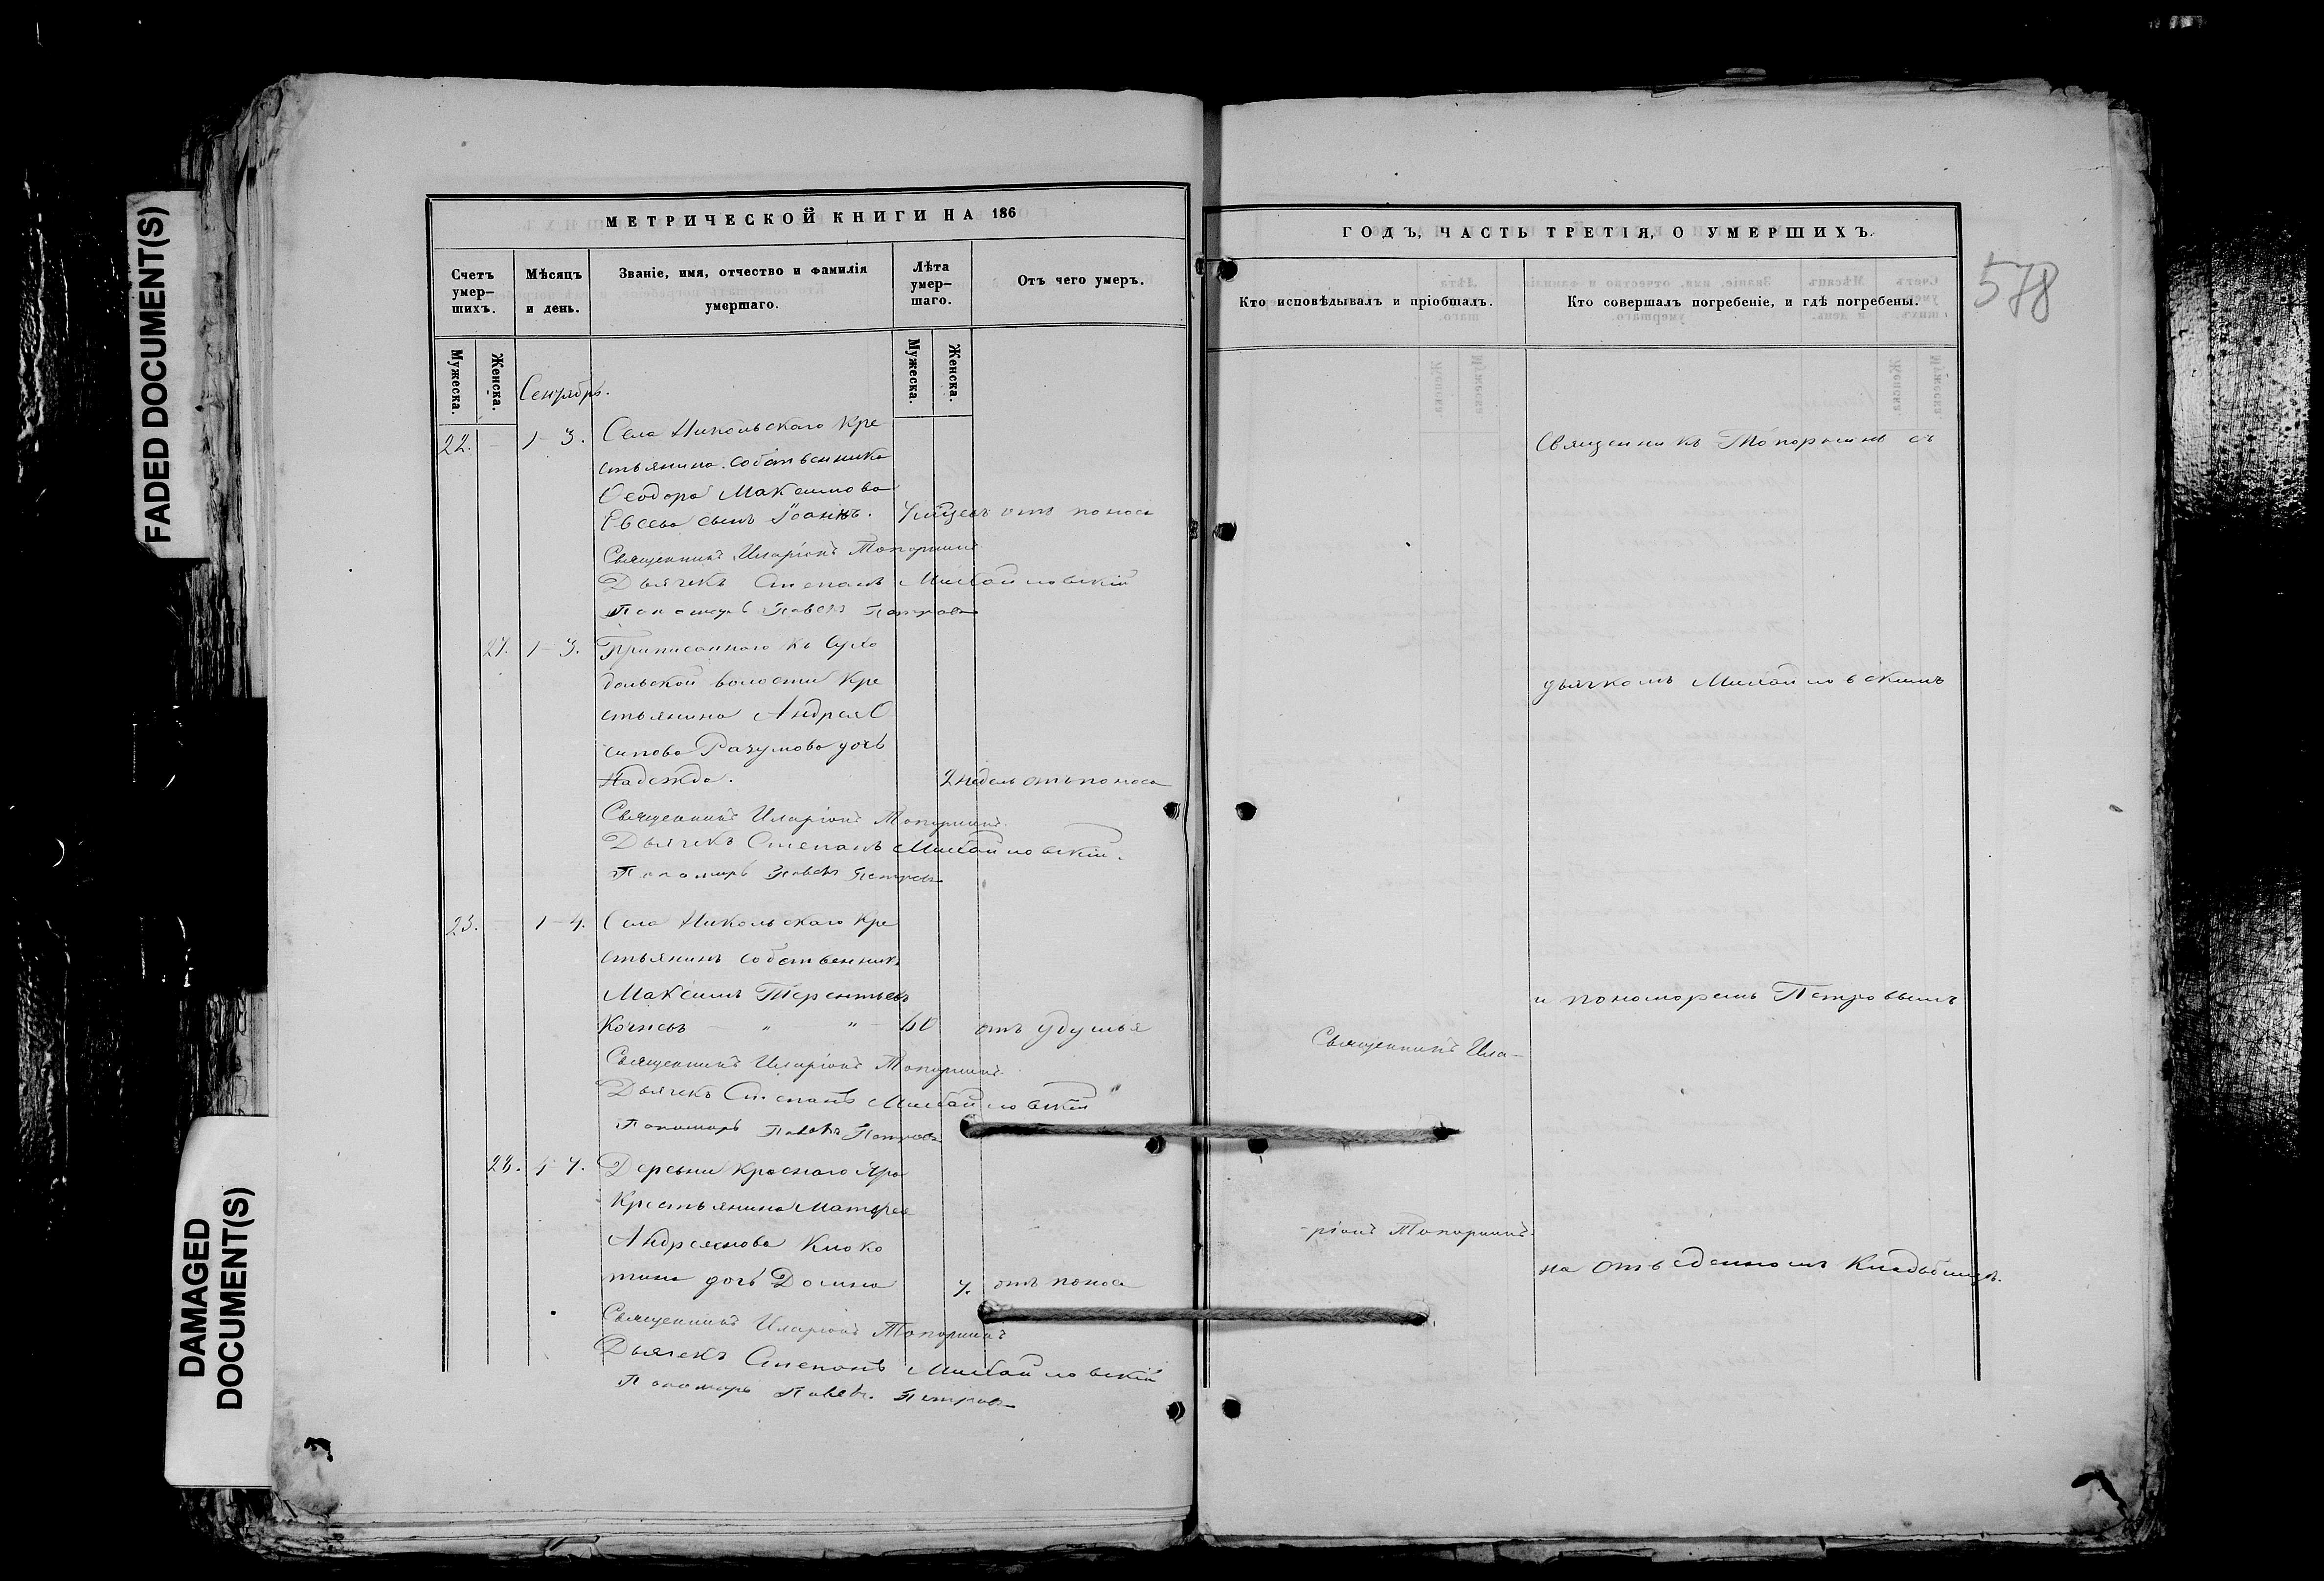 FADED DOCUMENT(S)
DAMAGED
DOCUMENT(S)
МЕТРИЧЕСКОЙ КНИГИ НА 186
Счетъ умер-шихъ.
Мѣсяцъ и день.
Званіе, имя, отчество и фамилія умершаго.
Лѣта умер-шаго.
Отъ чего умеръ.
Мужеска.
Женска.
Мужеска.
Женска.
Сентябрь.
22. - 1 - 3. Села Никольскаго Кре
стьянина собственника
Ѳеодора Максимова
сынъ Іоаннъ. отъ поноса
Священникъ Иларіонъ Топорнинъ
Дьячекъ Степанъ Михайловскій
Пономарь Павелъ Петровъ
27. 1 - 3. Приписаннаго къ Сухо
дольской волости Кре
стьянина Андрея О
сипова Разумова дочь
Надежда. 2 недель отъ поноса
Священникъ Иларіонъ Топорнинъ
Дьячекъ Степанъ Михайловскій.
Пономарь Павелъ Петровъ
23. - 1 - 4. Села Никольскаго Кре
стьянинъ собственникъ
Максимъ Терентьевъ
60 отъ удушья
Священникъ Иларіонъ Топорнинъ
Дьячекъ Степанъ Михайловскій
Пономарь Павелъ Петровъ
28. 7. Деревни Краснаго Яра
Крестьянина Матфея
Андреянова Клоко
тина дочь Домна 7. отъ поноса
Священникъ Иларіонъ Топорнинъ
Дьячекъ Степанъ Михайловскій
Пономарь Павелъ Петровъ
ГОДЪ, ЧАСТЬ ТРЕТІЯ, О УМЕРШИХЪ.
578
Кто исповѣдывалъ и пріобщалъ.
Кто совершалъ погребеніе, и гдѣ погребены.
Священникъ Топорнинъ съ
дьячкомъ Михайловскимъ
и пономаремъ Петровымъ
Священникъ Ила-
-ріонъ Топорнинъ.
на отведенномъ Кладбищѣ.